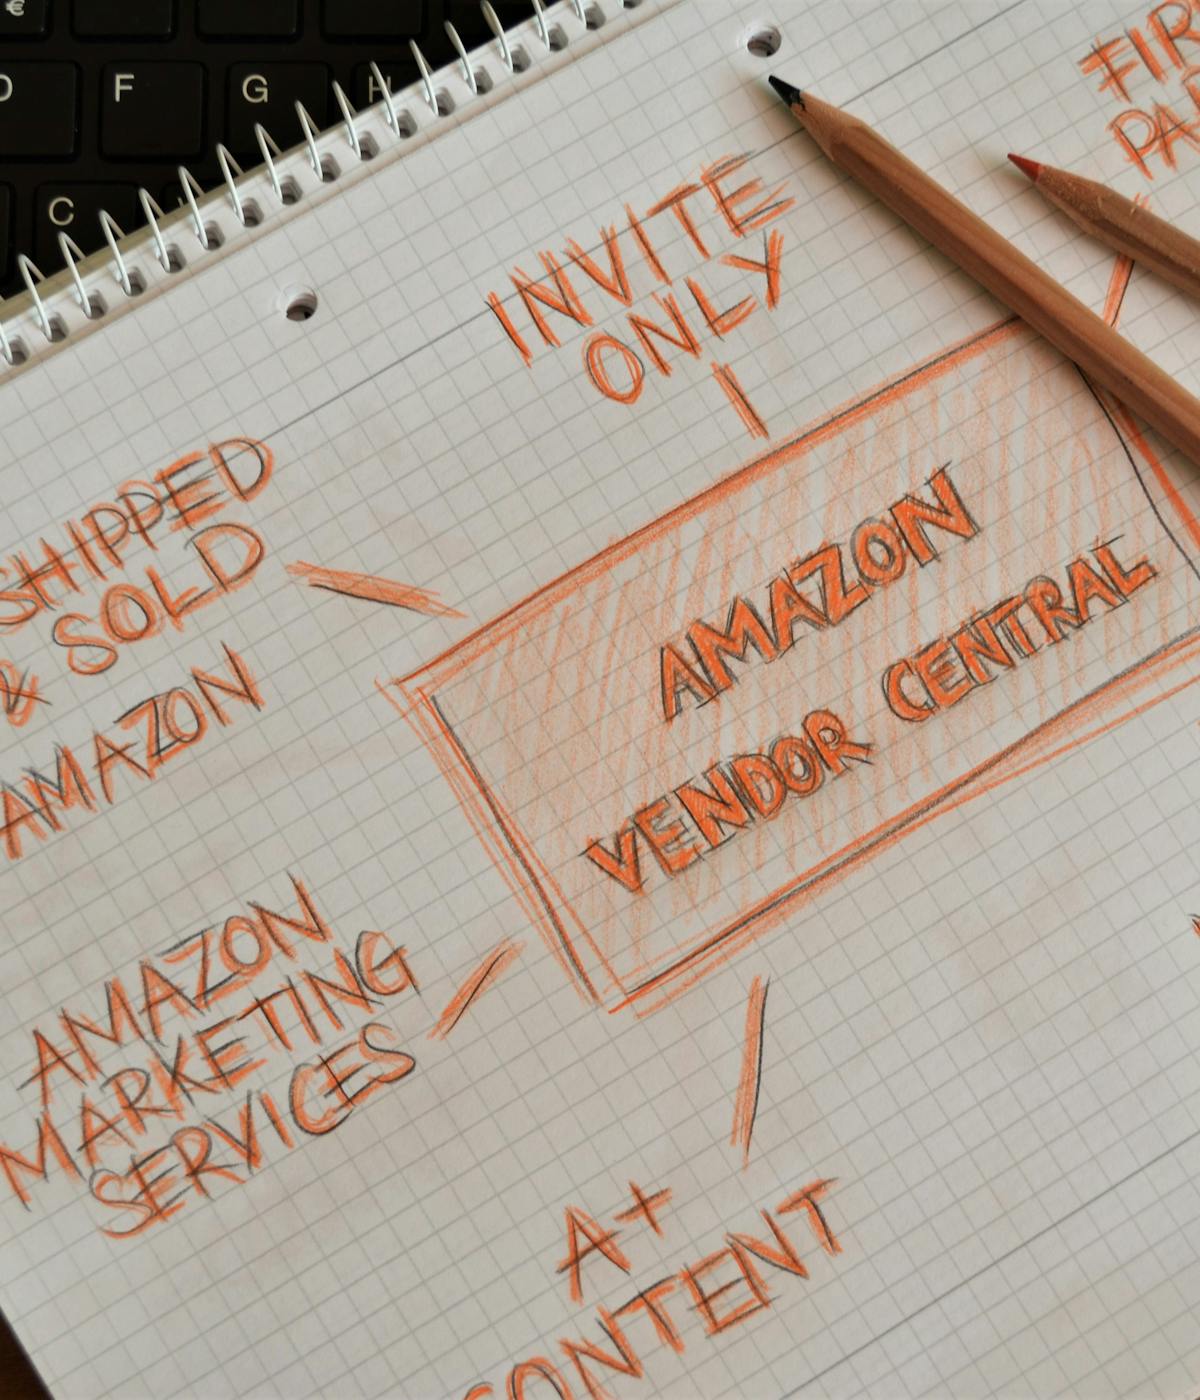 €
D F G H
C
INVITE
ONLY
FIR
PA
SHIPPED
& SOLD
AMAZON
AMAZON
VENDOR CENTRAL
AMAZON
MARKETING
SERVICES
A+
CONTENT